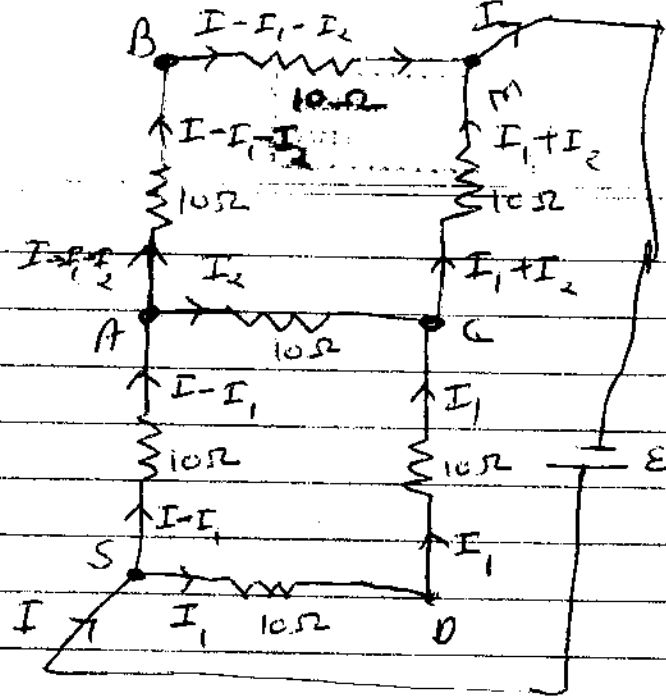 I-I₁-I₂ I
B
10Ω E
I-I₁-I₂ I₁+I₂
10Ω 10Ω
I-I₁-I₂ I₂ I₁+I₂
A 10Ω C
I-I₁ I₁
10Ω 10Ω ε
I-I₁
S I₁
I I₁ 10Ω D